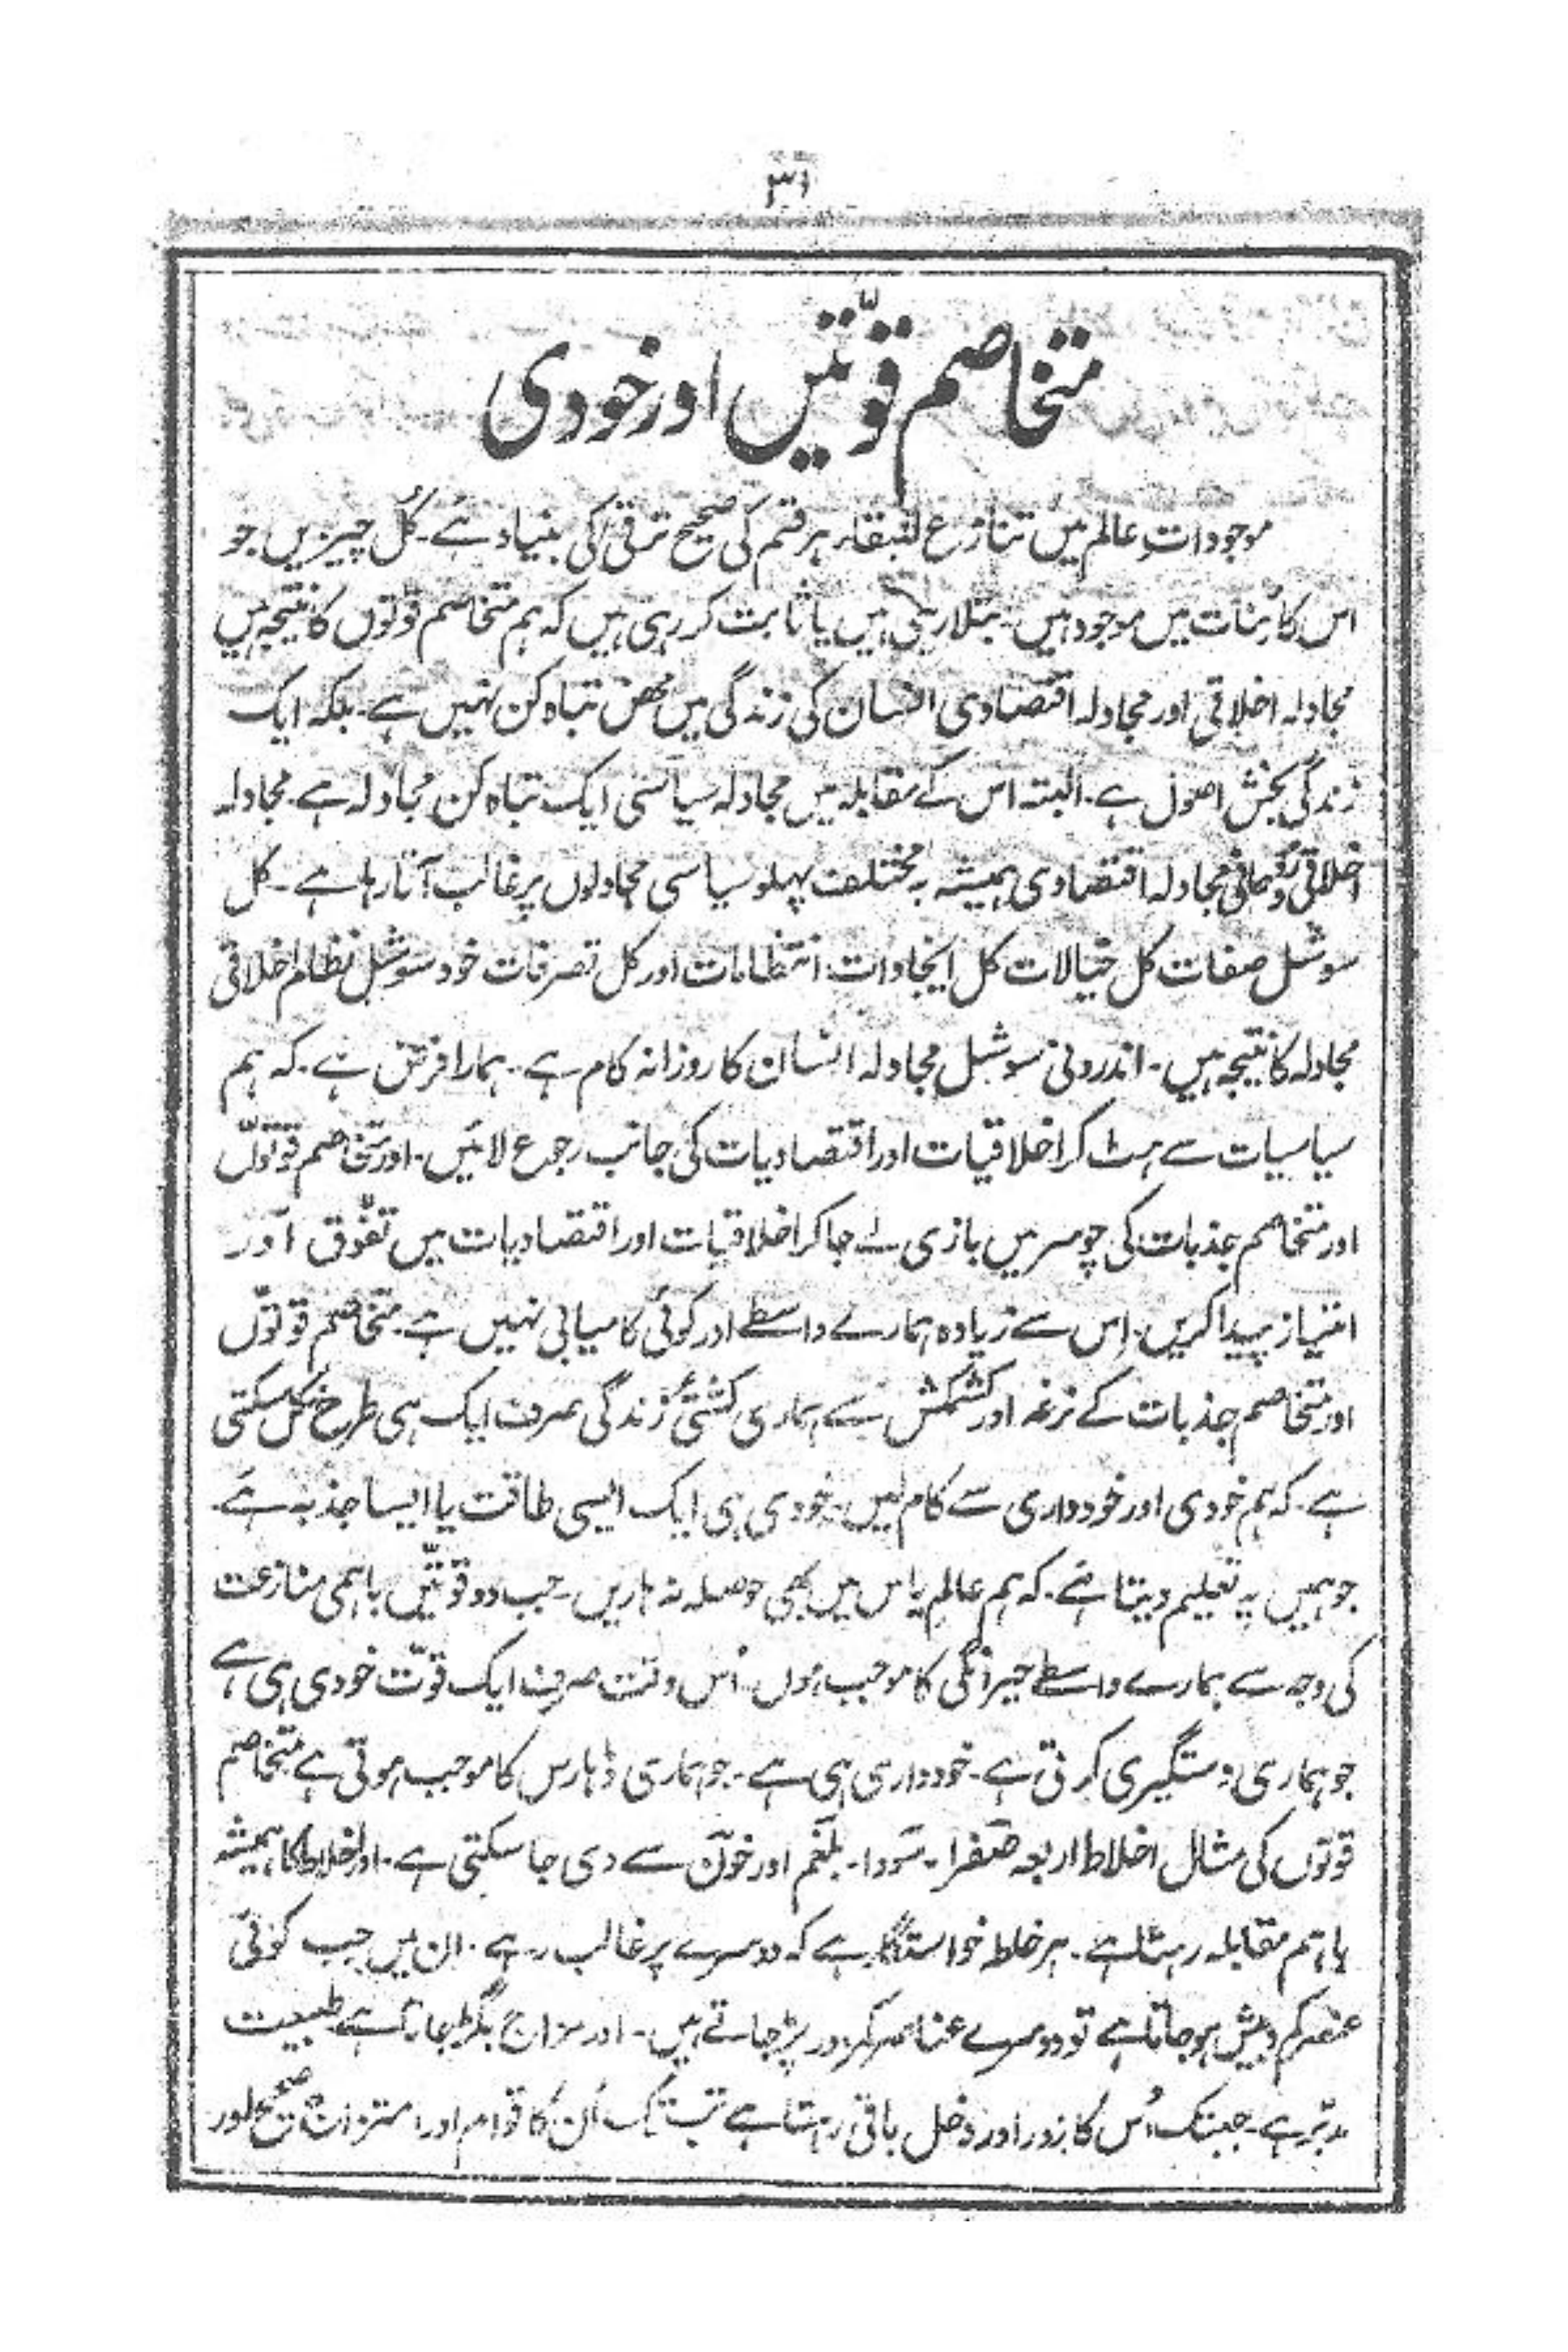 ۳۱
متخاصم قوّتیں اور خودی
موجوداتِ عالم میں تنازع للبقاء ہر قسم کی صحیح ترقی کی بنیاد ہے۔ کُل چیزیں جو
اس کائنات میں موجود ہیں۔ بتلا رہی ہیں یا ثابت کر رہی ہیں کہ ہم متخاصم قوتوں کا نتیجہ ہیں
مجادلہ اخلاقی اور مجادلہ اقتصادی انسان کی زندگی میں محض تباہ کن نہیں ہے۔ بلکہ ایک
زندگی بخش اصول ہے۔ البتہ اس کے مقابلہ میں مجادلہ سیاسی ایک تباہ کن مجادلہ ہے۔ مجادلہ
اخلاقی روحانی مجادلہ اقتصادی ہمیشہ بہ مختلف پہلو سیاسی مجادلوں پر غالب آتا رہا ہے۔ کل
سوشل صفات کل خیالات کل ایجادات انتظامات اور کل تصرفات خود سوشل نظام اخلاقی
مجادلہ کا نتیجہ ہیں۔ اندرونی سوشل مجادلہ انسان کا روزانہ کام ہے۔ ہمارا فرض ہے۔ کہ ہم
سیاسیات سے ہٹ کر اخلاقیات اور اقتصادیات کی جانب رجوع لائیں۔ اور متخاصم قوتوں
اور متخاصم جذبات کی چوسر میں بازی لے جا کر اخلاقیات اور اقتصادیات میں تفوّق اور
امتیاز پیدا کریں۔ اس سے زیادہ ہمارے واسطے اور کوئی کامیابی نہیں ہے۔ متخاصم قوتوں
اور متخاصم جذبات کے نرغہ اور کشمکش سے ہماری کشتیٔ زندگی صرف ایک ہی طرح نکل سکتی
ہے۔ کہ ہم خودی اور خودداری سے کام لیں۔ خودی ہی ایک ایسی طاقت یا ایسا جذبہ ہے۔
جو ہمیں یہ تعلیم دیتا ہے۔ کہ ہم عالمِ یاس میں بھی حوصلہ نہ ہاریں۔ جب دو قوتیں باہمی منازعت
کی وجہ سے ہمارے واسطے حیرانگی کا موجب ہوں۔ اُس وقت صرف ایک قوّت خودی ہی ہے
جو ہماری دستگیری کرتی ہے۔ خودداری ہی ہے۔ جو ہماری ڈھارس کا موجب ہوتی ہے متخاصم
قوتوں کی مثال اخلاط اربعہ صفرا۔ سودا۔ بلغم اور خون سے دی جا سکتی ہے۔ اور اخلاط کا ہمیشہ
باہم مقابلہ رہتا ہے۔ ہر خلط خواستگار ہے کہ دوسرے پر غالب رہے۔ ان میں جب کوئی
عنصر کم و بیش ہو جاتا ہے تو دوسرے عناصر کمزور پڑ جاتے ہیں۔ اور مزاج بگڑ جاتا ہے طبیعت
مدبّر ہے۔ جبتک اُس کا زور اور دخل باقی رہتا ہے تب تک اُن کا قوام اور امتزاج صحیح اور